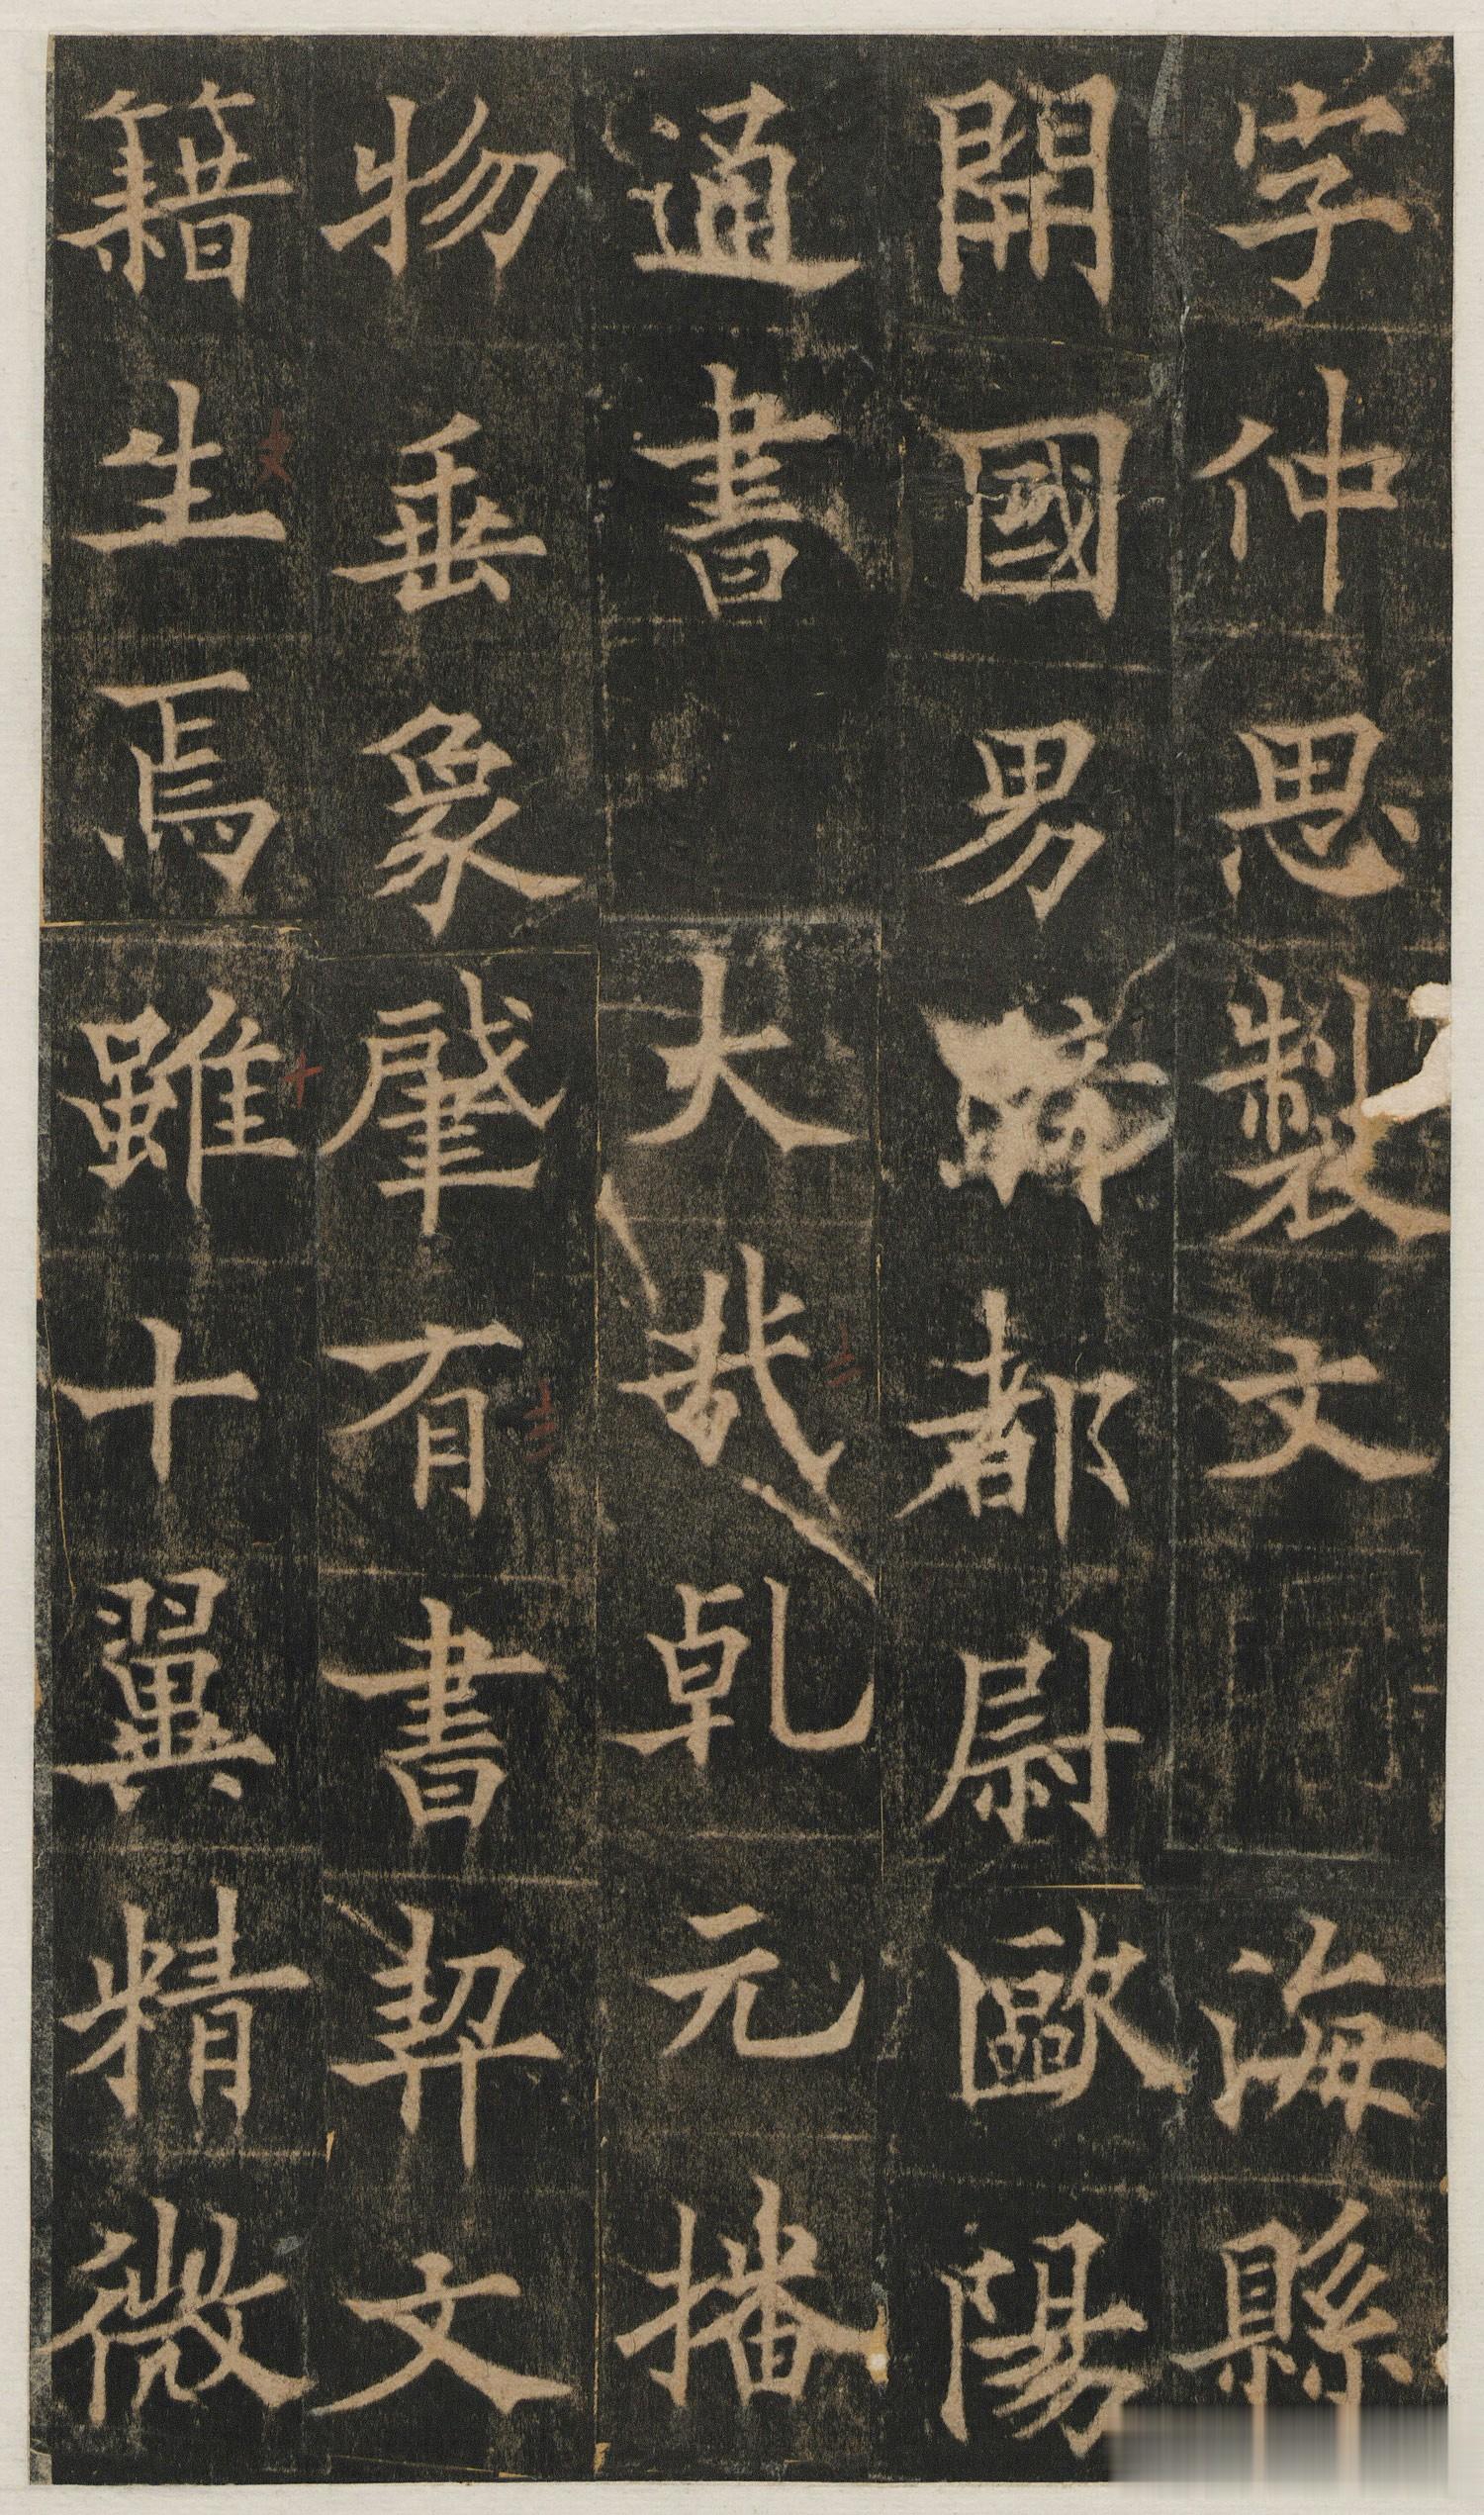 字仲思製文海縣
開國男都尉歐陽
通書大哉乾元播
物垂象肇有書契文
籍生焉雖十翼精微